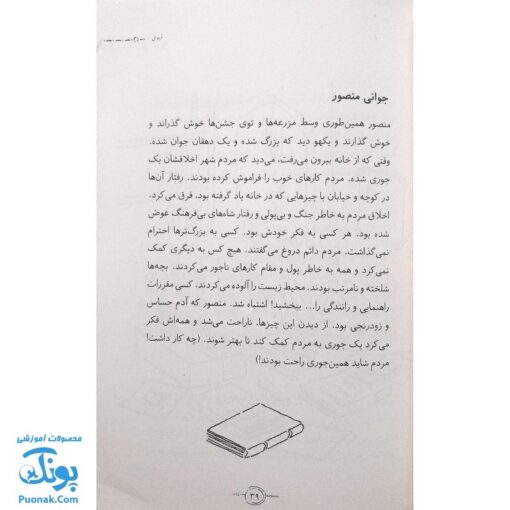 جوانی منصور
منصور همین‌طوری وسط مزرعه‌ها و توی جشن‌ها خوش گذراند و
خوش گذارند و یکهو دید که بزرگ شده و یک دهقان جوان شده.
وقتی که از خانه بیرون می‌رفت، می‌دید که مردم شهر اخلاقشان یک
جوری شده. مردم کارهای خوب را فراموش کرده بودند. رفتار آن‌ها
در کوچه و خیابان با چیزهایی که در خانه یاد گرفته بود، فرق می‌کرد.
اخلاق مردم به خاطر جنگ و بی‌پولی و رفتار شاه‌های بی‌فرهنگ عوض
شده بود. هر کسی به فکر خودش بود. کسی به بزرگ‌ترها احترام
نمی‌گذاشت. مردم دائم دروغ می‌گفتند. هیچ کس به دیگری کمک
نمی‌کرد و همه به خاطر پول و مقام کارهای ناجور می‌کردند. بچه‌ها
شلخته و نامرتب بودند، محیط زیست را آلوده می‌کردند، کسی مقررات
راهنمایی و رانندگی را... ببخشید! اشتباه شد. منصور که آدم حساس
و زودرنجی بود، از دیدن این چیزها، ناراحت می‌شد و همه‌اش فکر
می‌کرد یک جوری به مردم کمک کند تا بهتر شوند. (چه کار داشت!
مردم شاید همین‌جوری راحت بودند!)
محصولات آموزشی
پونک
Puonak.Com
۳۹